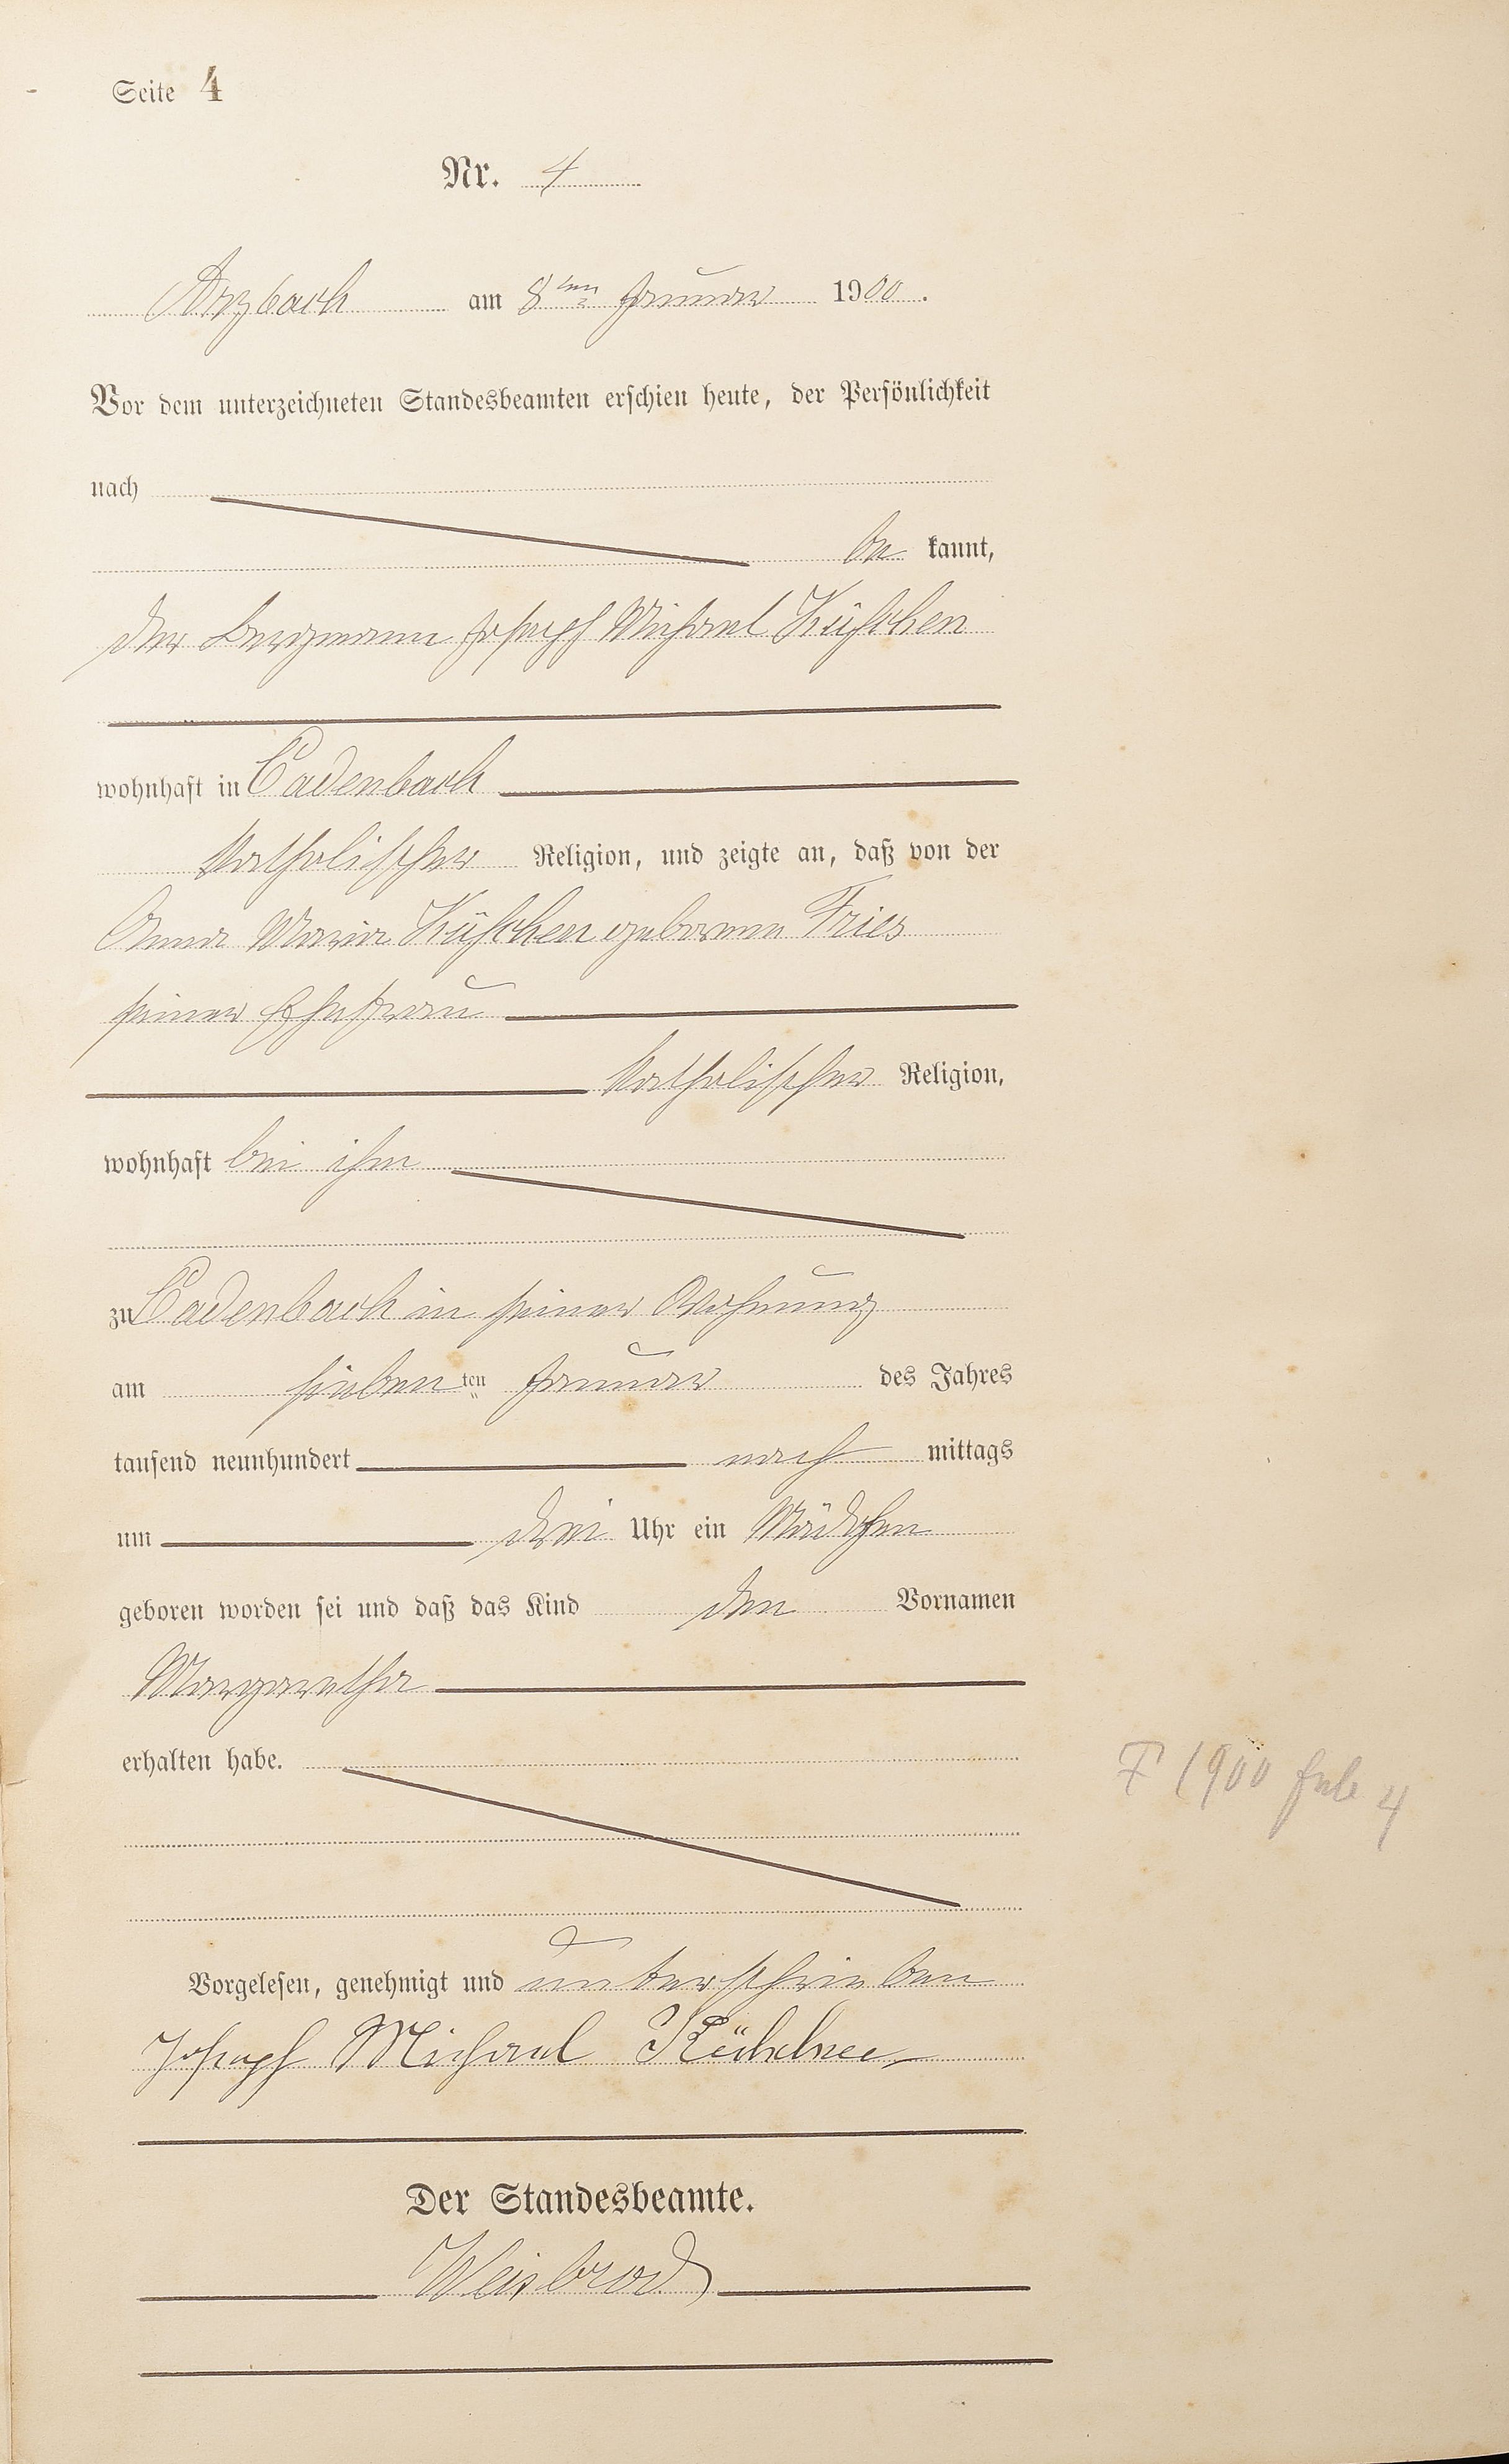 Seite 4
Nr. 4
Arzbach am 8ten Januar 1900.
Vor dem unterzeichneten Standesbeamten erschien heute, der Persönlichkeit
nach
be kannt,
der Bergmann Joseph Michael Küschen
wohnhaft in Cadenbach
katholischer Religion, und zeigte an, daß von der
Anna Maria Küschen geborene Fries
seiner Ehefrau
katholischer Religion,
wohnhaft bei ihm
zu Cadenbach in seiner Wohnung
am siebenten Januar des Jahres
tausend neunhundert nach mittags
um drei Uhr ein Mädchen
geboren worden sei und daß das Kind den Vornamen
Margaretha
erhalten habe.
1900 4
Vorgelesen, genehmigt und unterschrieben
Joseph Michael
Der Standesbeamte.
Weisbrod